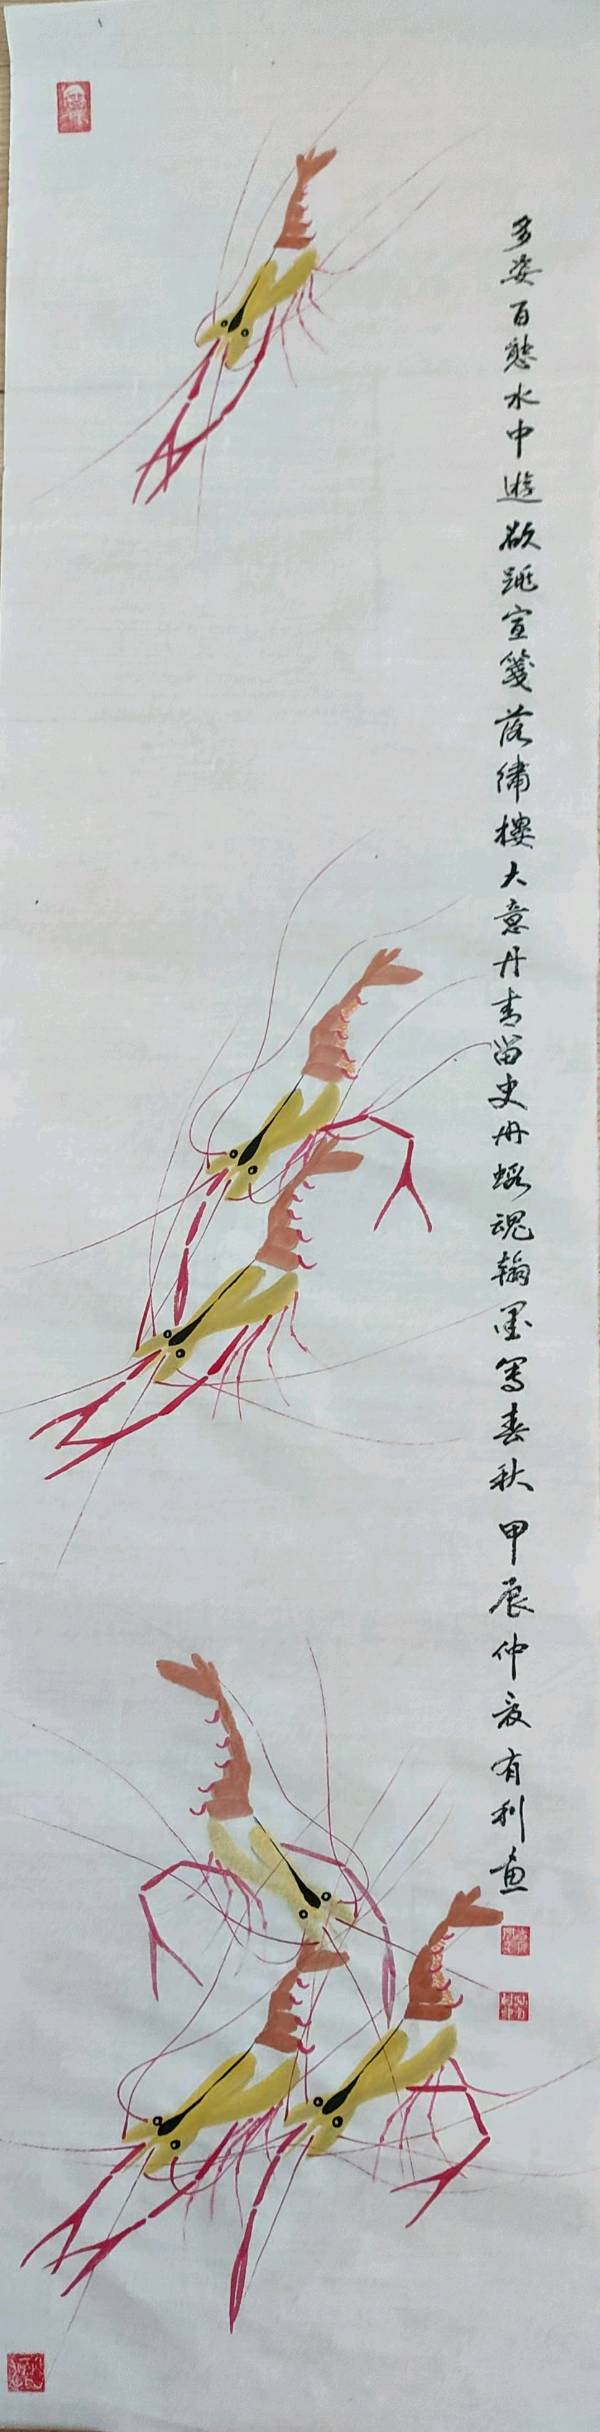 多姿百態水中遊欲跳宣箋落繡樓大意丹青留史冊蝦魂翰墨寫春秋 甲辰仲夏有利畫